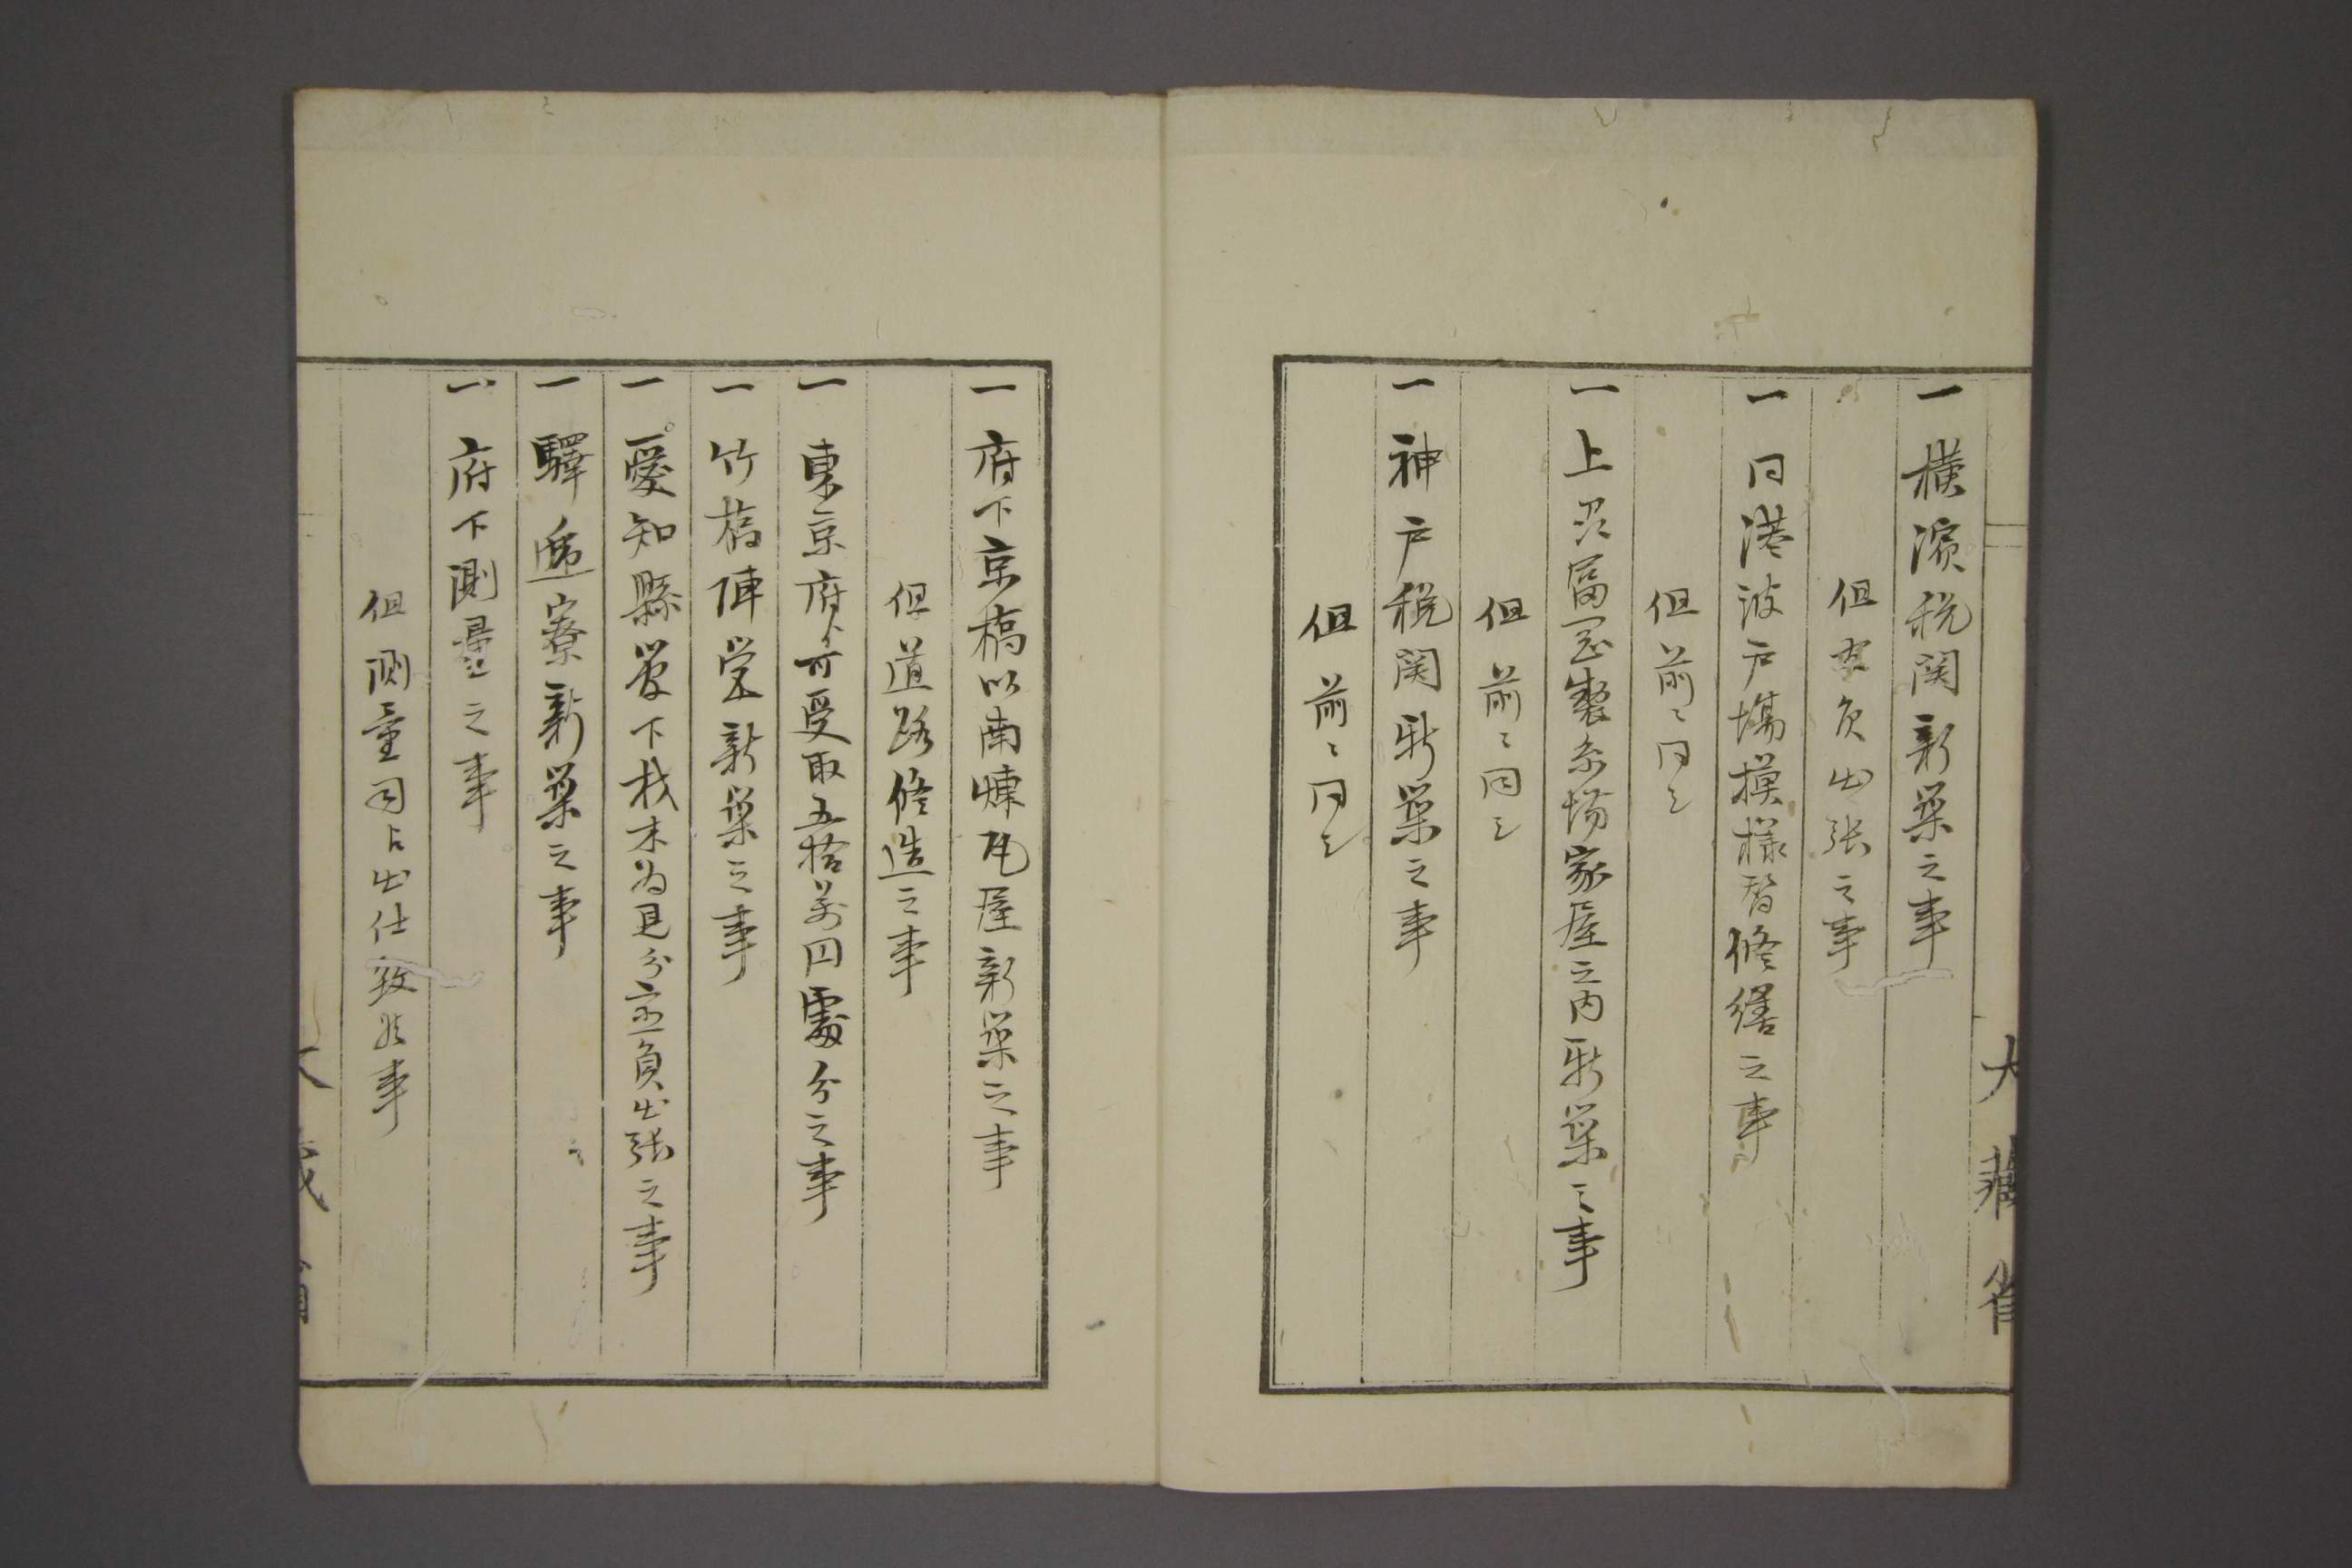 一 横濱税関新築之事
但官員出張之事
一 同港波戸場摸様替修繕之事
但前ニ同シ
一 上州富岡製糸場家屋之内新築之事
但前ニ同シ
一 神戸税関新築之事
但前ニ同シ
大藏省
一 府下京橋以南煉瓦屋新築之事
但道路修造之事
一 東京府ゟ可受取五拾萬円處分之事
一 竹橋陣営新築之事
一 愛知縣管下材木為見分官員出張之事
一 驛逓寮新築之事
一 府下測量之事
但測量司ゟ出仕致候事
大藏省